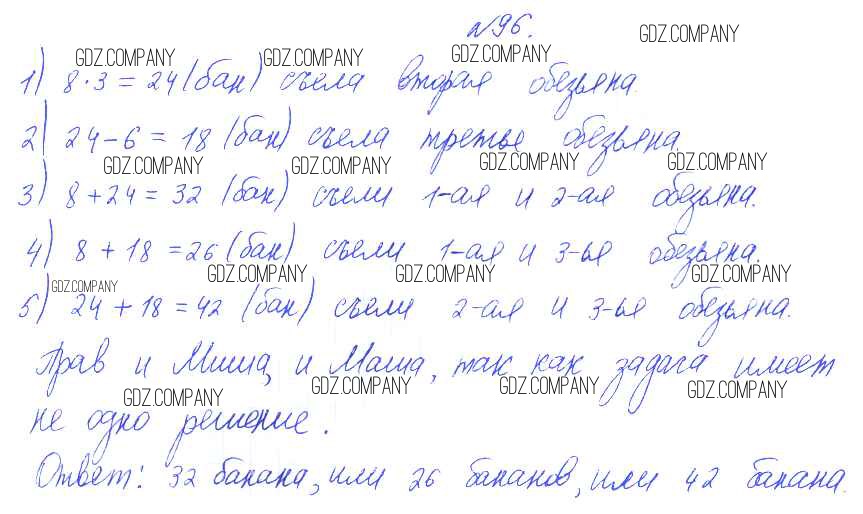 №96.
GDZ.COMPANY GDZ.COMPANY GDZ.COMPANY GDZ.COMPANY
1) 8·3=24(бан) съела вторая обезьяна.
2) 24-6=18 (бан) съела третье обезьяна.
GDZ.COMPANY GDZ.COMPANY GDZ.COMPANY GDZ.COMPANY
3) 8+24=32 (бан) съели 1-ая и 2-ая обезьяна.
4) 8+18=26(бан) съели 1-ая и 3-ья обезьяна.
GDZ.COMPANY GDZ.COMPANY GDZ.COMPANY GDZ.COMPANY
5) 24+18=42 (бан) съели 2-ая и 3-ья обезьяна.
Прав и Миша, и Маша, так как задача имеет
GDZ.COMPANY GDZ.COMPANY GDZ.COMPANY GDZ.COMPANY
не одно решение.
Ответ: 32 банана, или 26 бананов, или 42 банана.